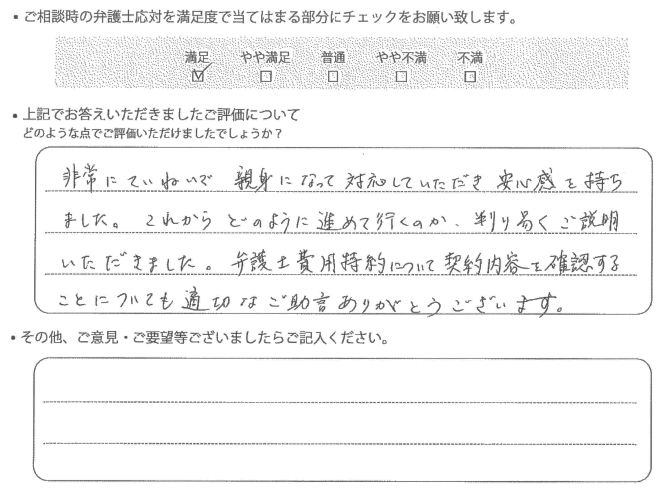 ・ご相談時の弁護士応対を満足度で当てはまる部分にチェックをお願い致します。
満足 やや満足 普通 やや不満 不満
☑ □ □ □ □
・上記でお答えいただきましたご評価について
どのような点でご評価いただけましたでしょうか？
非常にていねいで 親身になって対応していただき 安心感を持ち
ました。これからどのように進めて行くのか、判り易くご説明
いただきました。弁護士費用特約について契約内容を確認する
ことについても適切なご助言ありがとうございます。
・その他、ご意見・ご要望等ございましたらご記入ください。